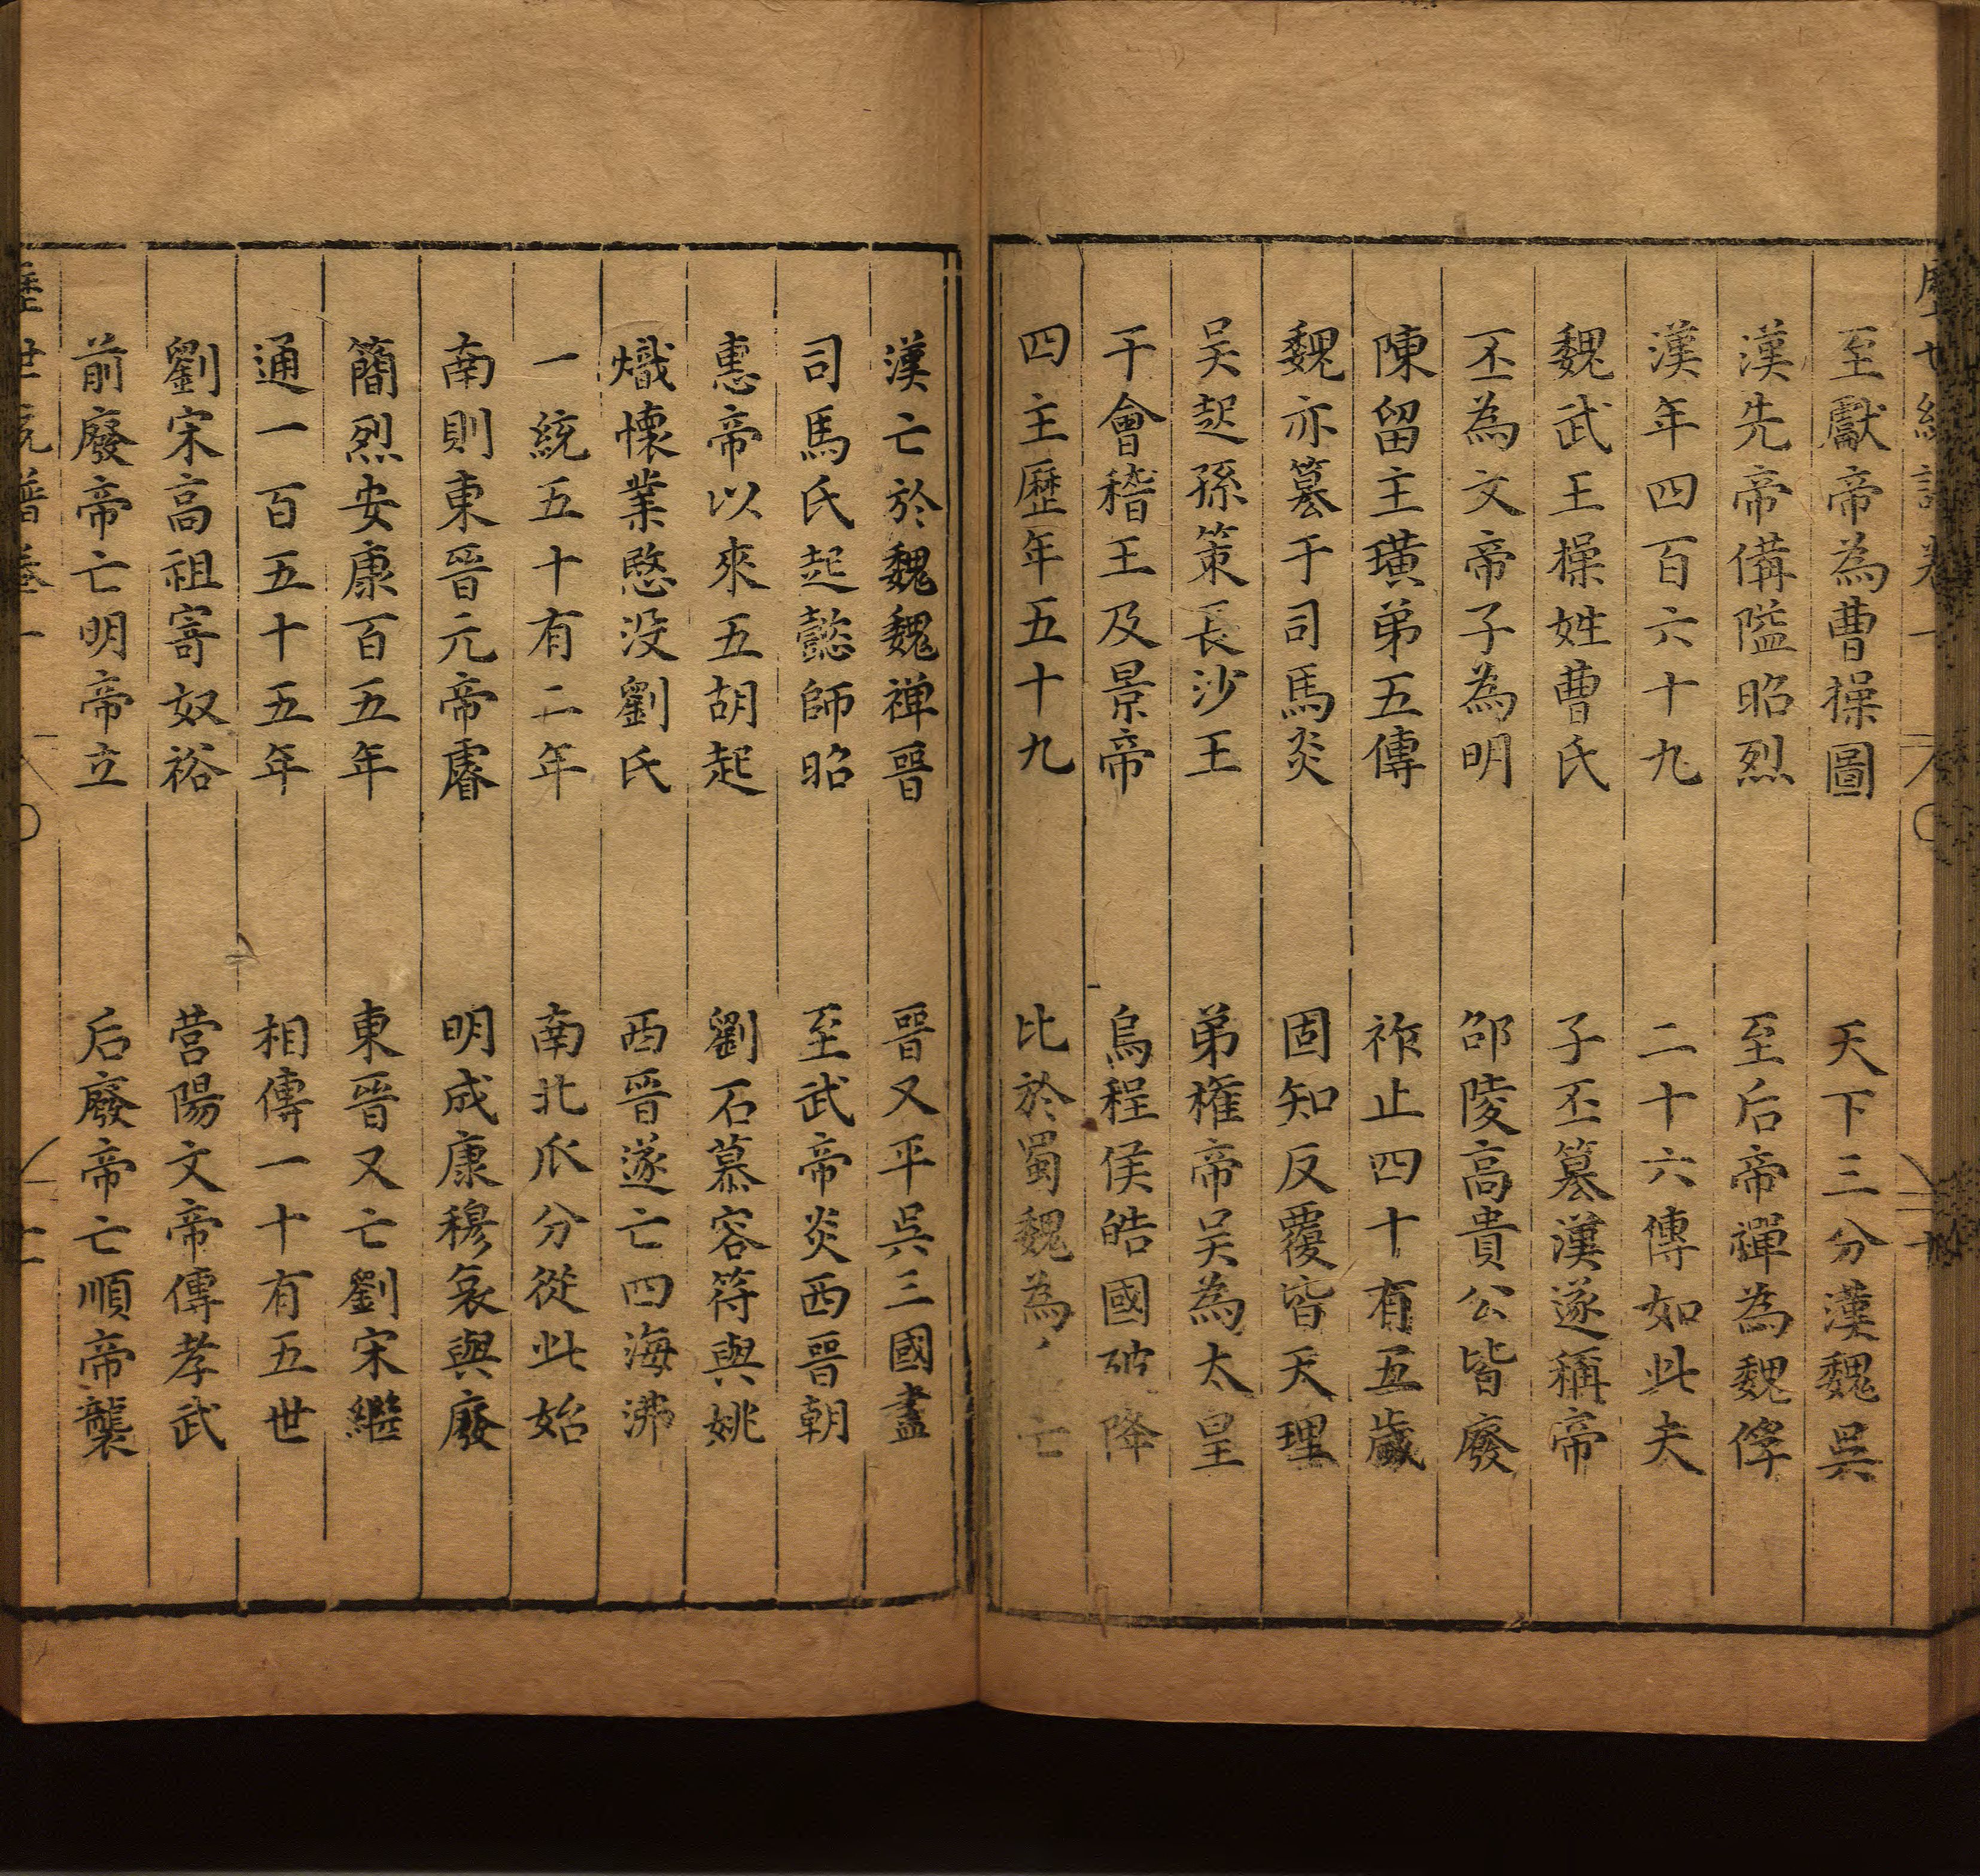 至獻帝為曹操圖　天下三分漢魏吳
漢先帝備隘昭烈　至后帝禪為魏俘
漢年四百六十九　二十六傳如此夫
魏武王操姓曹氏　子丕篡漢遂稱帝
丕為文帝子為明　邵陵高貴公皆廢
陳留主璜弟五傳　祚止四十有五歲
魏亦篡于司馬炎　固知反覆皆天理
吴起孫策長沙王　弟權帝吴為太皇
干會稽王及景帝　烏程侯皓國破降
四主歷年五十九　比於蜀魏為亡
漢亡於魏魏禅晉　晉又平吳三國盡
司馬氏起懿師昭　至武帝炎西晉朝
惠帝以來五胡起　劉石慕容符與姚
熾懷業愍没劉氏　西晉遂亡四海沸
一統五十有二年　南北瓜分從此始
南則東晉元帝睿　明成康穆哀與廢
簡烈安康百五年　東晉又亡劉宋繼
通一百五十五年　相傳一十有五世
劉宋高祖寄奴裕　营陽文帝傳孝武
前廢帝亡明帝立　后廢帝亡順帝襲
歷世統譜卷一